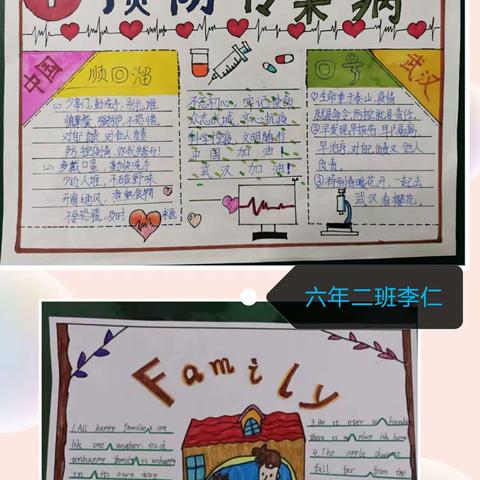 预防传染病
中国
顺口溜
(1)少串门,勤洗手,别扎堆
对自己负责 对他人负责
(2)多戴口罩,勤快洗手
少行人堆,不碰野味
开窗通风,煮熟食物
不忘初心,牢记使命
众志成城,齐心抗疫
科学防疫,文明随行
中国加油!
武汉加油!
口号
武汉
①生命重于泰山,疫情
就是命令,防控就是责任。
②早发现,早报告,早隔离,
早治疗,对自己负责,对他人
负责。
③待到春暖花开,一起去
武汉看樱花。
六年二班李仁
Family
1.All happy familie are
lik one another each
unhappy family is unhappy
in its own way
3.Be it ever so humble
there is no place like home
4. The apple does
fall far from the